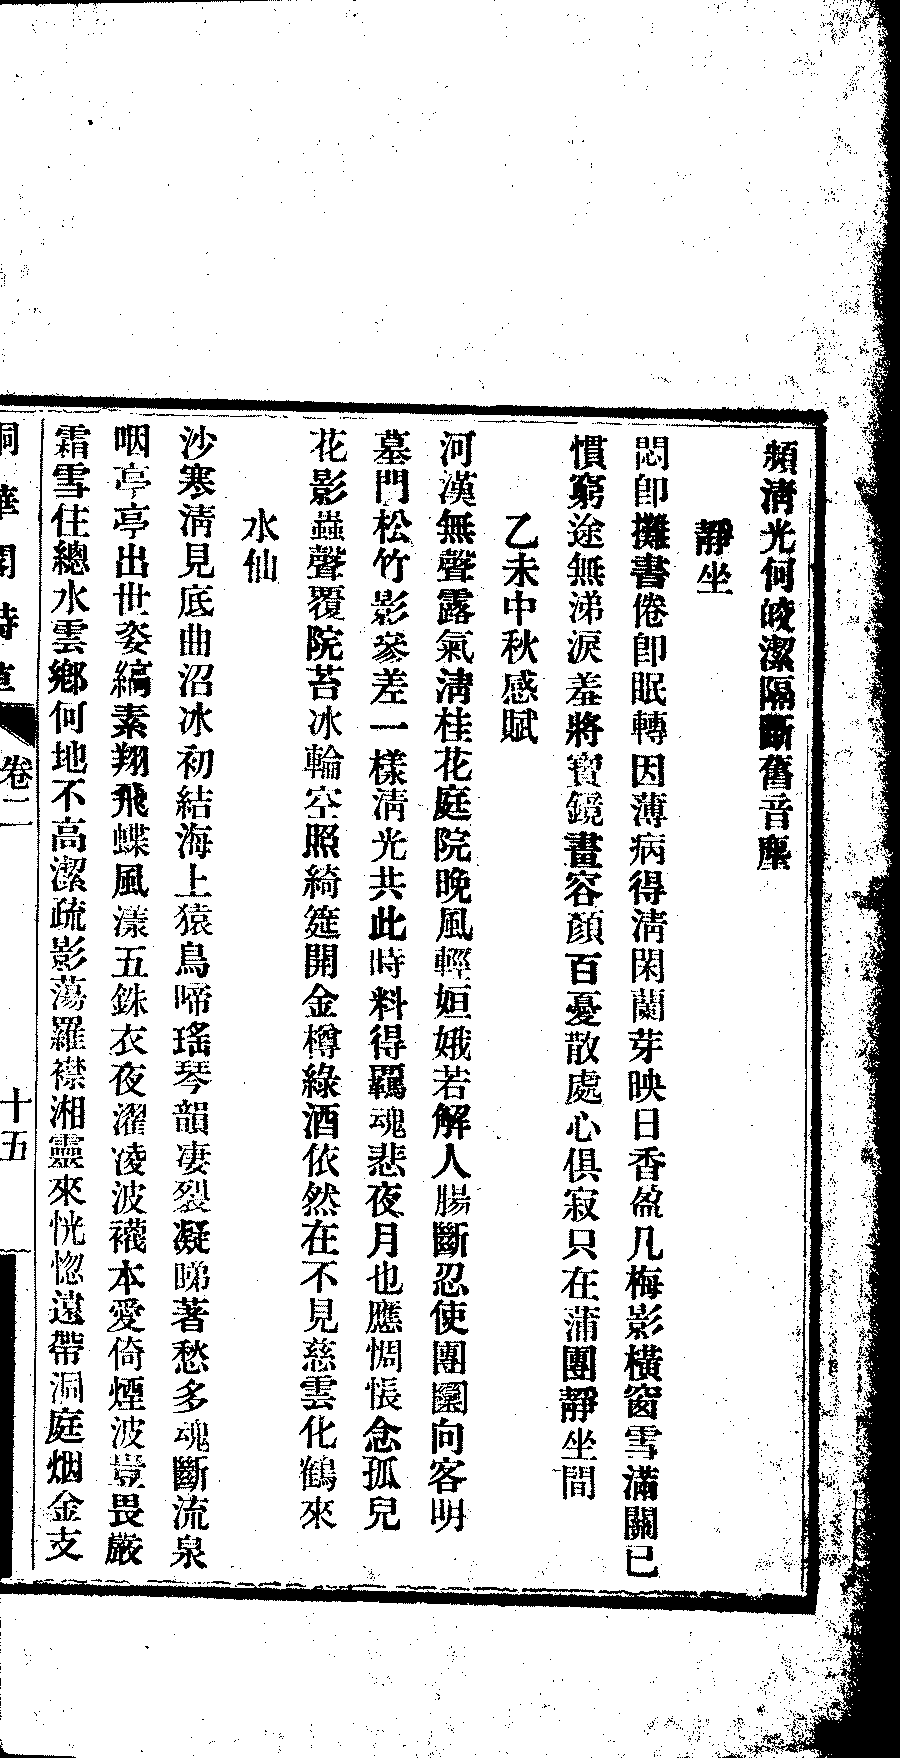 頻淸光何皎潔隔斷舊音塵
靜坐
悶卽攤書倦卽眠轉因薄病得淸閑蘭芽映日香盈几梅影橫窗雪滿關已
慣窮途無涕淚羞將寶鏡畫容顏百憂散處心俱寂只在蒲團靜坐間
乙未中秋感賦
河漢無聲露氣淸桂花庭院晚風輕姮娥若解人腸斷忍使團圞向客明
墓門松竹影參差一樣淸光共此時料得羈魂悲夜月也應惆悵念孤兒
花影蟲聲覆院苔冰輪空照綺筵開金樽綠酒依然在不見慈雲化鶴來
水仙
沙寒淸見底曲沼冰初結海上猿鳥啼瑤琴韻凄裂凝睇著愁多魂斷流泉
咽亭亭出世姿縞素翔飛蝶風漾五銖衣夜濯凌波襪本愛倚煙波豈畏嚴
霜雪住總水雲鄉何地不高潔疏影蕩羅襟湘靈來恍惚遠帶洞庭烟金支
洞華閣詩草 卷二 十五